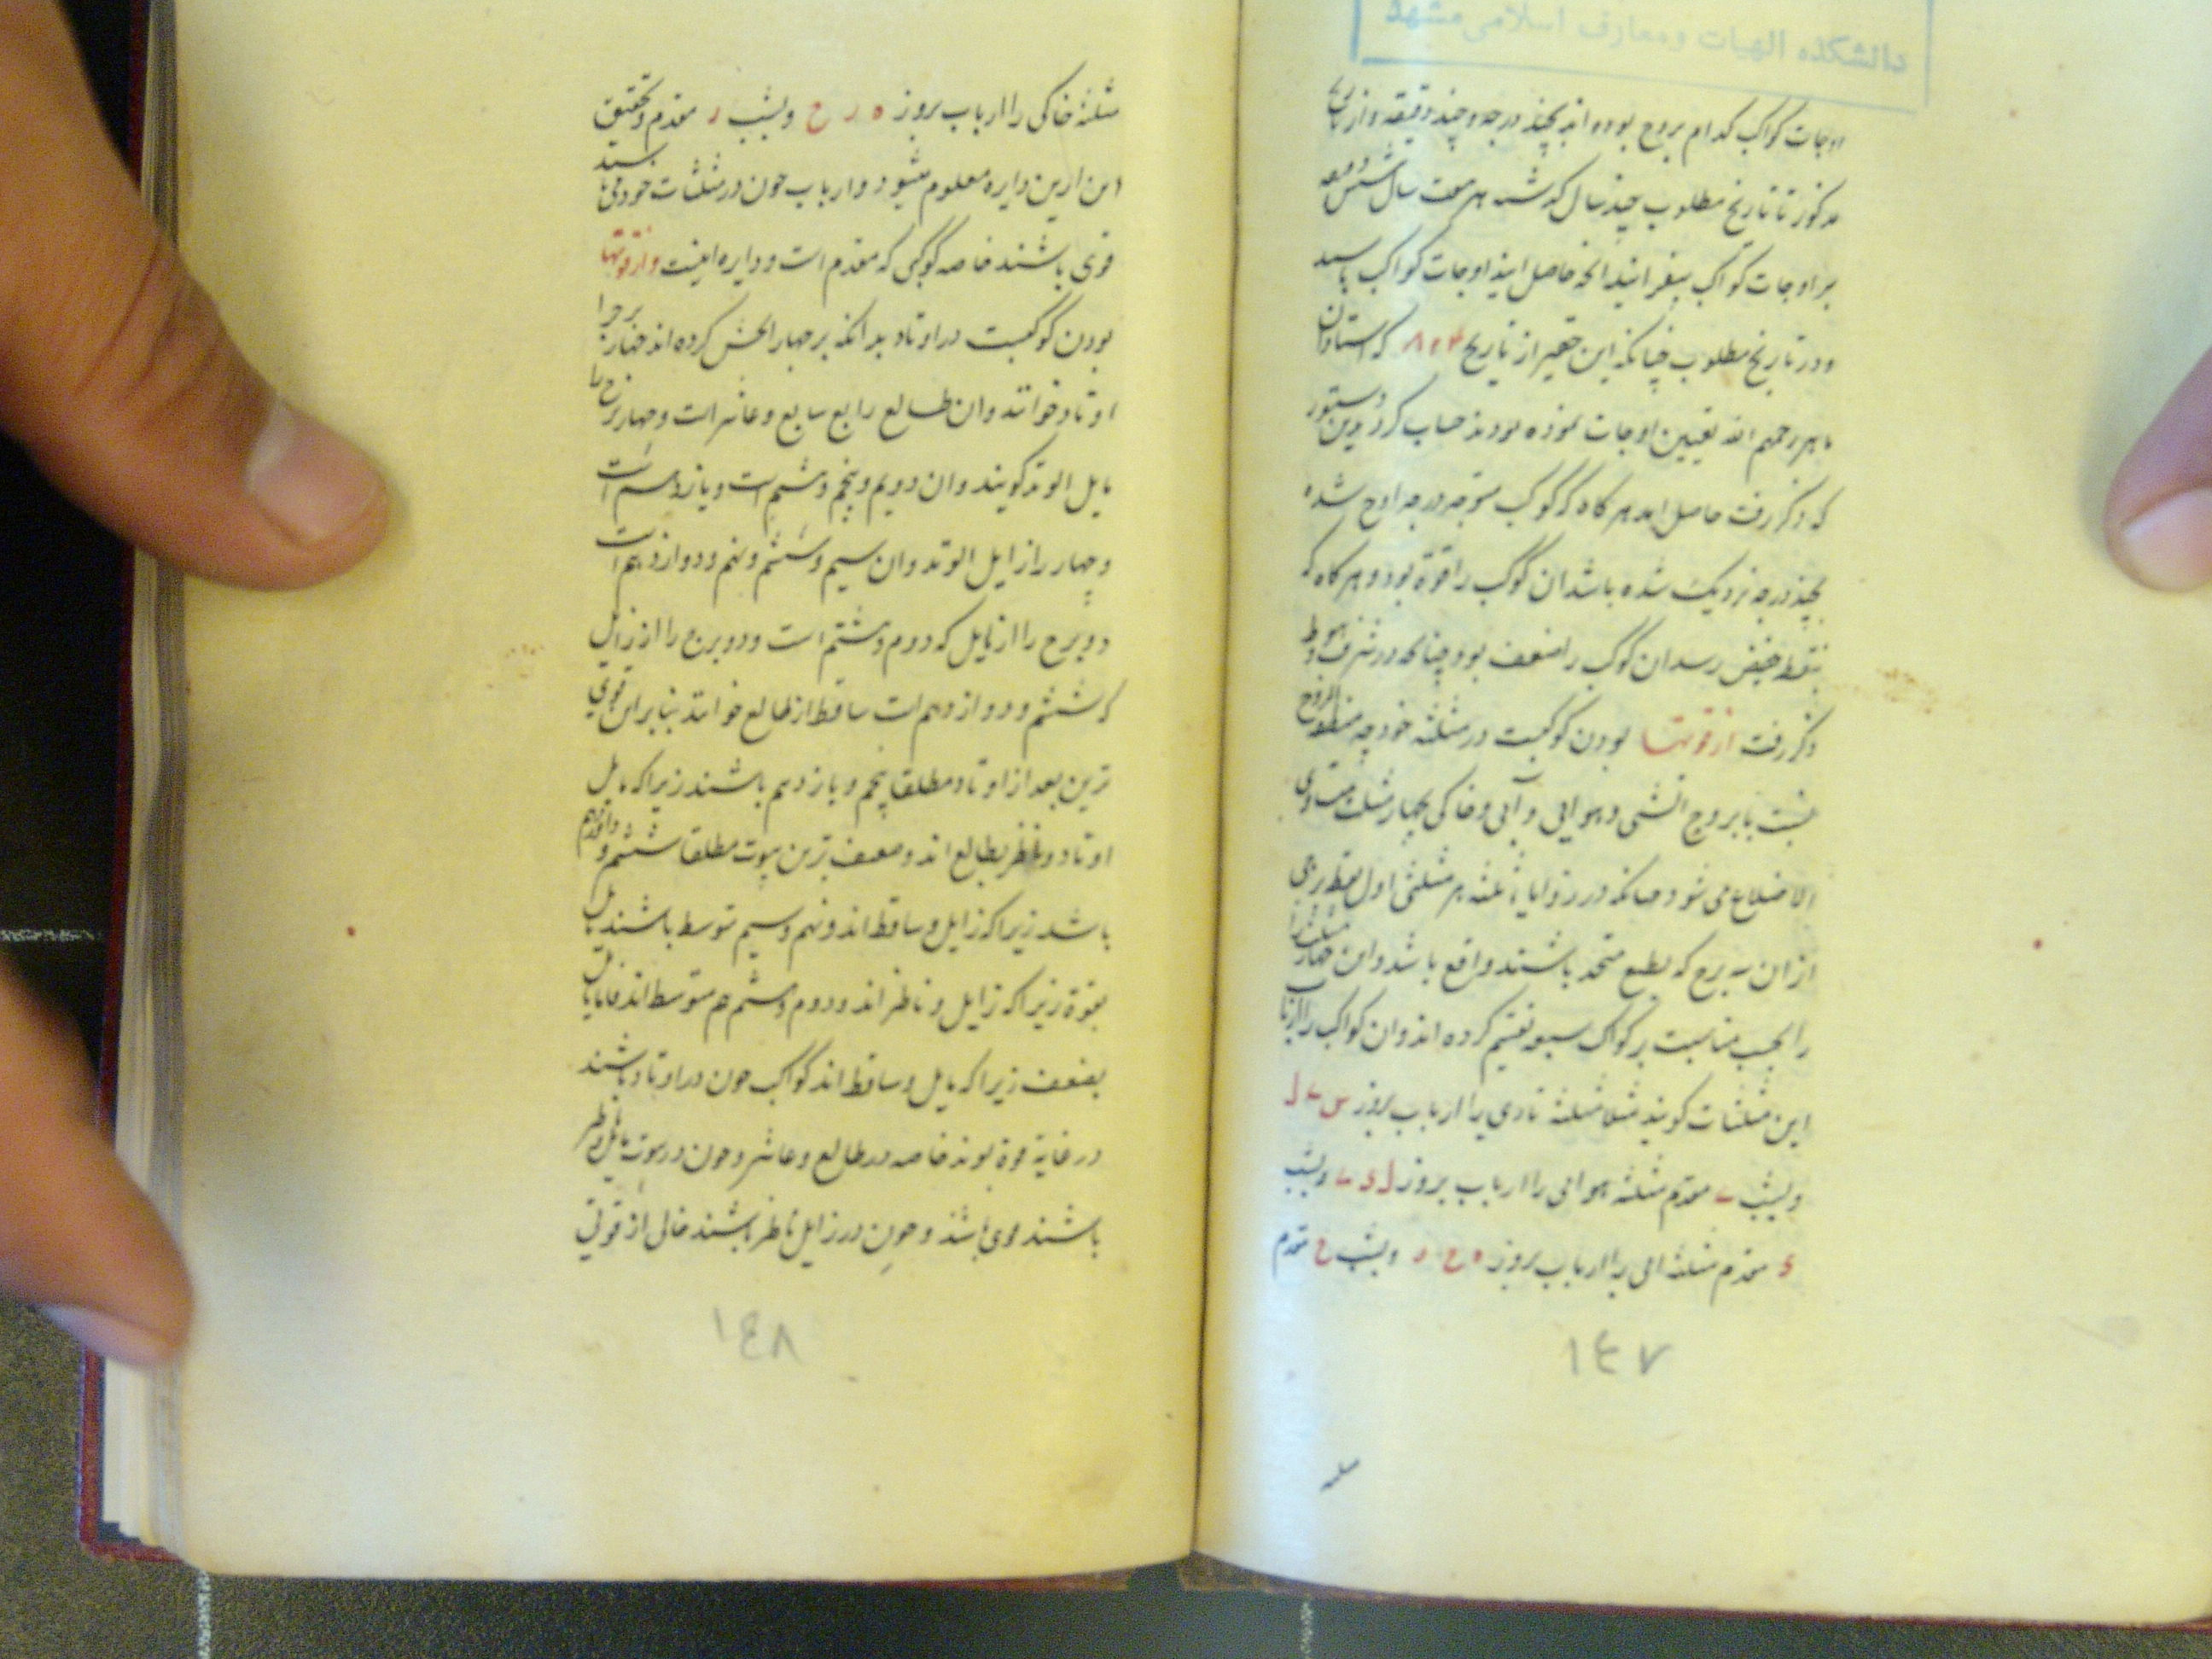 دانشکده الهیات و معارف اسلامی مشهد
اوجات کواکب کدام بروج بوده اند بچند درجه و چند دقیقه و از تاریخ
مذکور تا تاریخ مطلوب چند سال کذشته هر سال
بر اوجات کواکب بیفزایند انچه حاصل اید اوجات کواکب باشد
و در تاریخ مطلوب چنانکه این حقیر از تاریخ که استادان
ماهر رحمهم الله تعیین اوجات نموده بودند حساب کرد بدین دستور
که ذکر رفت حاصل امد هر کاه که کوکب متوجه درجه اوج شده
بچند درجه نزدیک شده باشد ان کوکب را قوة بود و هر کاه که
بنقطه حضیض رسد ان کوکب را ضعف بود چنانکه در شرف و هبوط
ذکر رفت از قوتها بودن کوکبست در مثلثه خود چه منطقة البروج
بنسبت با بروج اتشی و هوایی و آبی و خاکی بچهار مثلث متساوی
الاضلاع می شود چنانکه در زوایا ثلثه هر مثلثی اول نقطه برجی
از ان سه برج که بطبع متحد باشند واقع باشد و این چهار مثلث را
را بحسب مناسبت بر کواکب سبعه تقسیم کرده اند وان کواکب را ارباب
این مثلثات کویند مثلا مثلثه ناری را ارباب بروز س ی ل
و بشب ی مقدم مثلثه هوایی را ارباب بروز ل د ی و بشب
د مقدم مثلثه ابی را ارباب بروز ه خ ر و بشب خ مقدم
١٤٧
مثلثه
مثلثه خاکی را ارباب بروز ه ر خ و بشب ر مقدم و تحقیق
این ازین دایره معلوم میشود و ارباب چون در مثلثات خود می باشند
قوی باشند خاصه کوکبی که مقدم است و دایره اینست و از قوتها
بودن کوکبست در اوتاد بدانکه بر چهار بخش کرده اند چهار برج را
اوتاد خوانند وان طالع رابع سابع و عاشر است و چهار برج را
مایل الوتد کویند وان دویم و پنجم و هشتم است و یازدهم است
و چهار را زایل الوتد وان سیم و ششم و نهم و دوازدهم است
دو برج را از مایل که دوم و هشتم است و دو برج را از زایل
که ششم و دوازدهم است ساقط از طالع خوانند بنابر ان قوی
ترین بعد از اوتاد مطلقا پنجم و یازدهم باشند زیرا که مایل
اوتاد و ناظر بطالع اند و ضعیف ترین بیوت مطلقا ششم و دوازدهم
باشد زیرا که زایل و ساقط اند و نهم و سیم متوسط باشند مایل
بقوة زیرا که زایل و ناظر اند و دوم و هشتم هم متوسط اند اما مایل
بضعف زیرا که مایل و ساقط اند کواکب چون در اوتاد باشند
در غایة قوة بوند خاصه در طالع و عاشر و چون در بیوت مایل ناظر
باشند قوی باشند و چون در زایل ناظر باشند خالی از قوتی
١٤٨